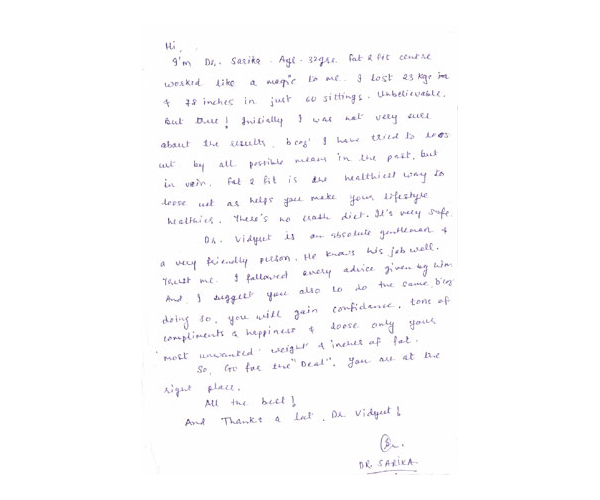 Hi,
I'm Dr. Sarika. Age - 32yrs. Fat 2 fit centre
worked like a magic to me. I lost 23 kgs in
& 78 inches in just 60 sittings. Unbelievable.
But true! Initially I was not very sure
about the results, bcoz' I have tried to loos
wt by all possible means in the past, but
in vein. Fat 2 fit is the healthiest way to
loose wt as helps you make your lifestyle
healthier. There's no crash diet. It's very safe.
Dr. Vidyut is an absolute gentleman &
a very friendly person. He knows his job well.
Trust me. I followed every advice given by him.
And, I suggest you also to do the same, b'coz
doing so, you will gain confidence, tons of
compliments & happiness & loose only your
'most unwanted' weight & inches of fat.
So, Go for the "Deal". You are at the
right place.
All the best!
And Thanks a lot, Dr Vidyut!
DR. SARIKA